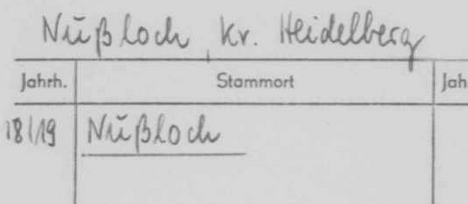 Nußloch, Kr. Heidelberg
Jahrh. Stammort Jah
18/19 Nußloch